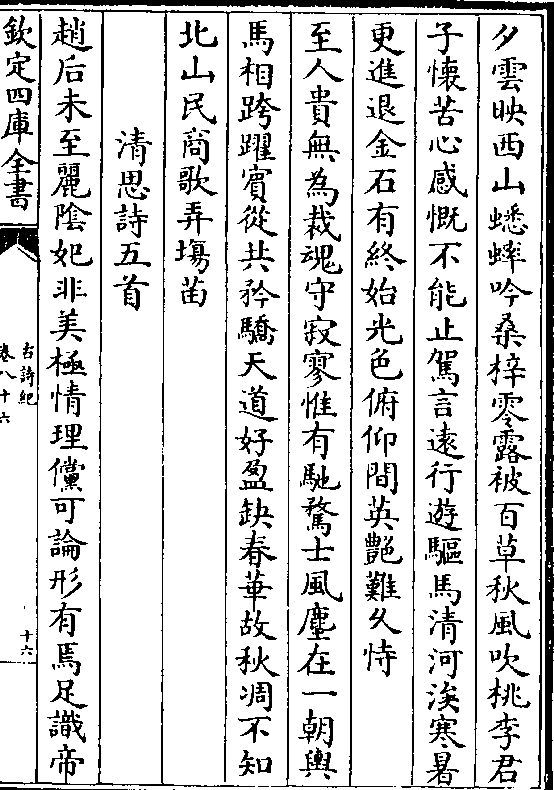 夕雲映西山蟋蟀吟桑梓零露被百草秋風吹桃李君
子懷苦心感慨不能止駕言遠行遊驅馬清河涘寒暑
更進退金石有終始光色俯仰間英艷難久恃
至人貴無為裁魂守寂寥惟有馳騖士風塵在一朝輿
馬相跨躍賓從共矜驕天道好盈缺春華故秋凋不知
北山民商歌弄塲苗
清思詩五首
趙后未至麗陰妃非美極情理儻可論形有焉足識帝
欽定四庫全書
古詩紀
卷八十六
十六